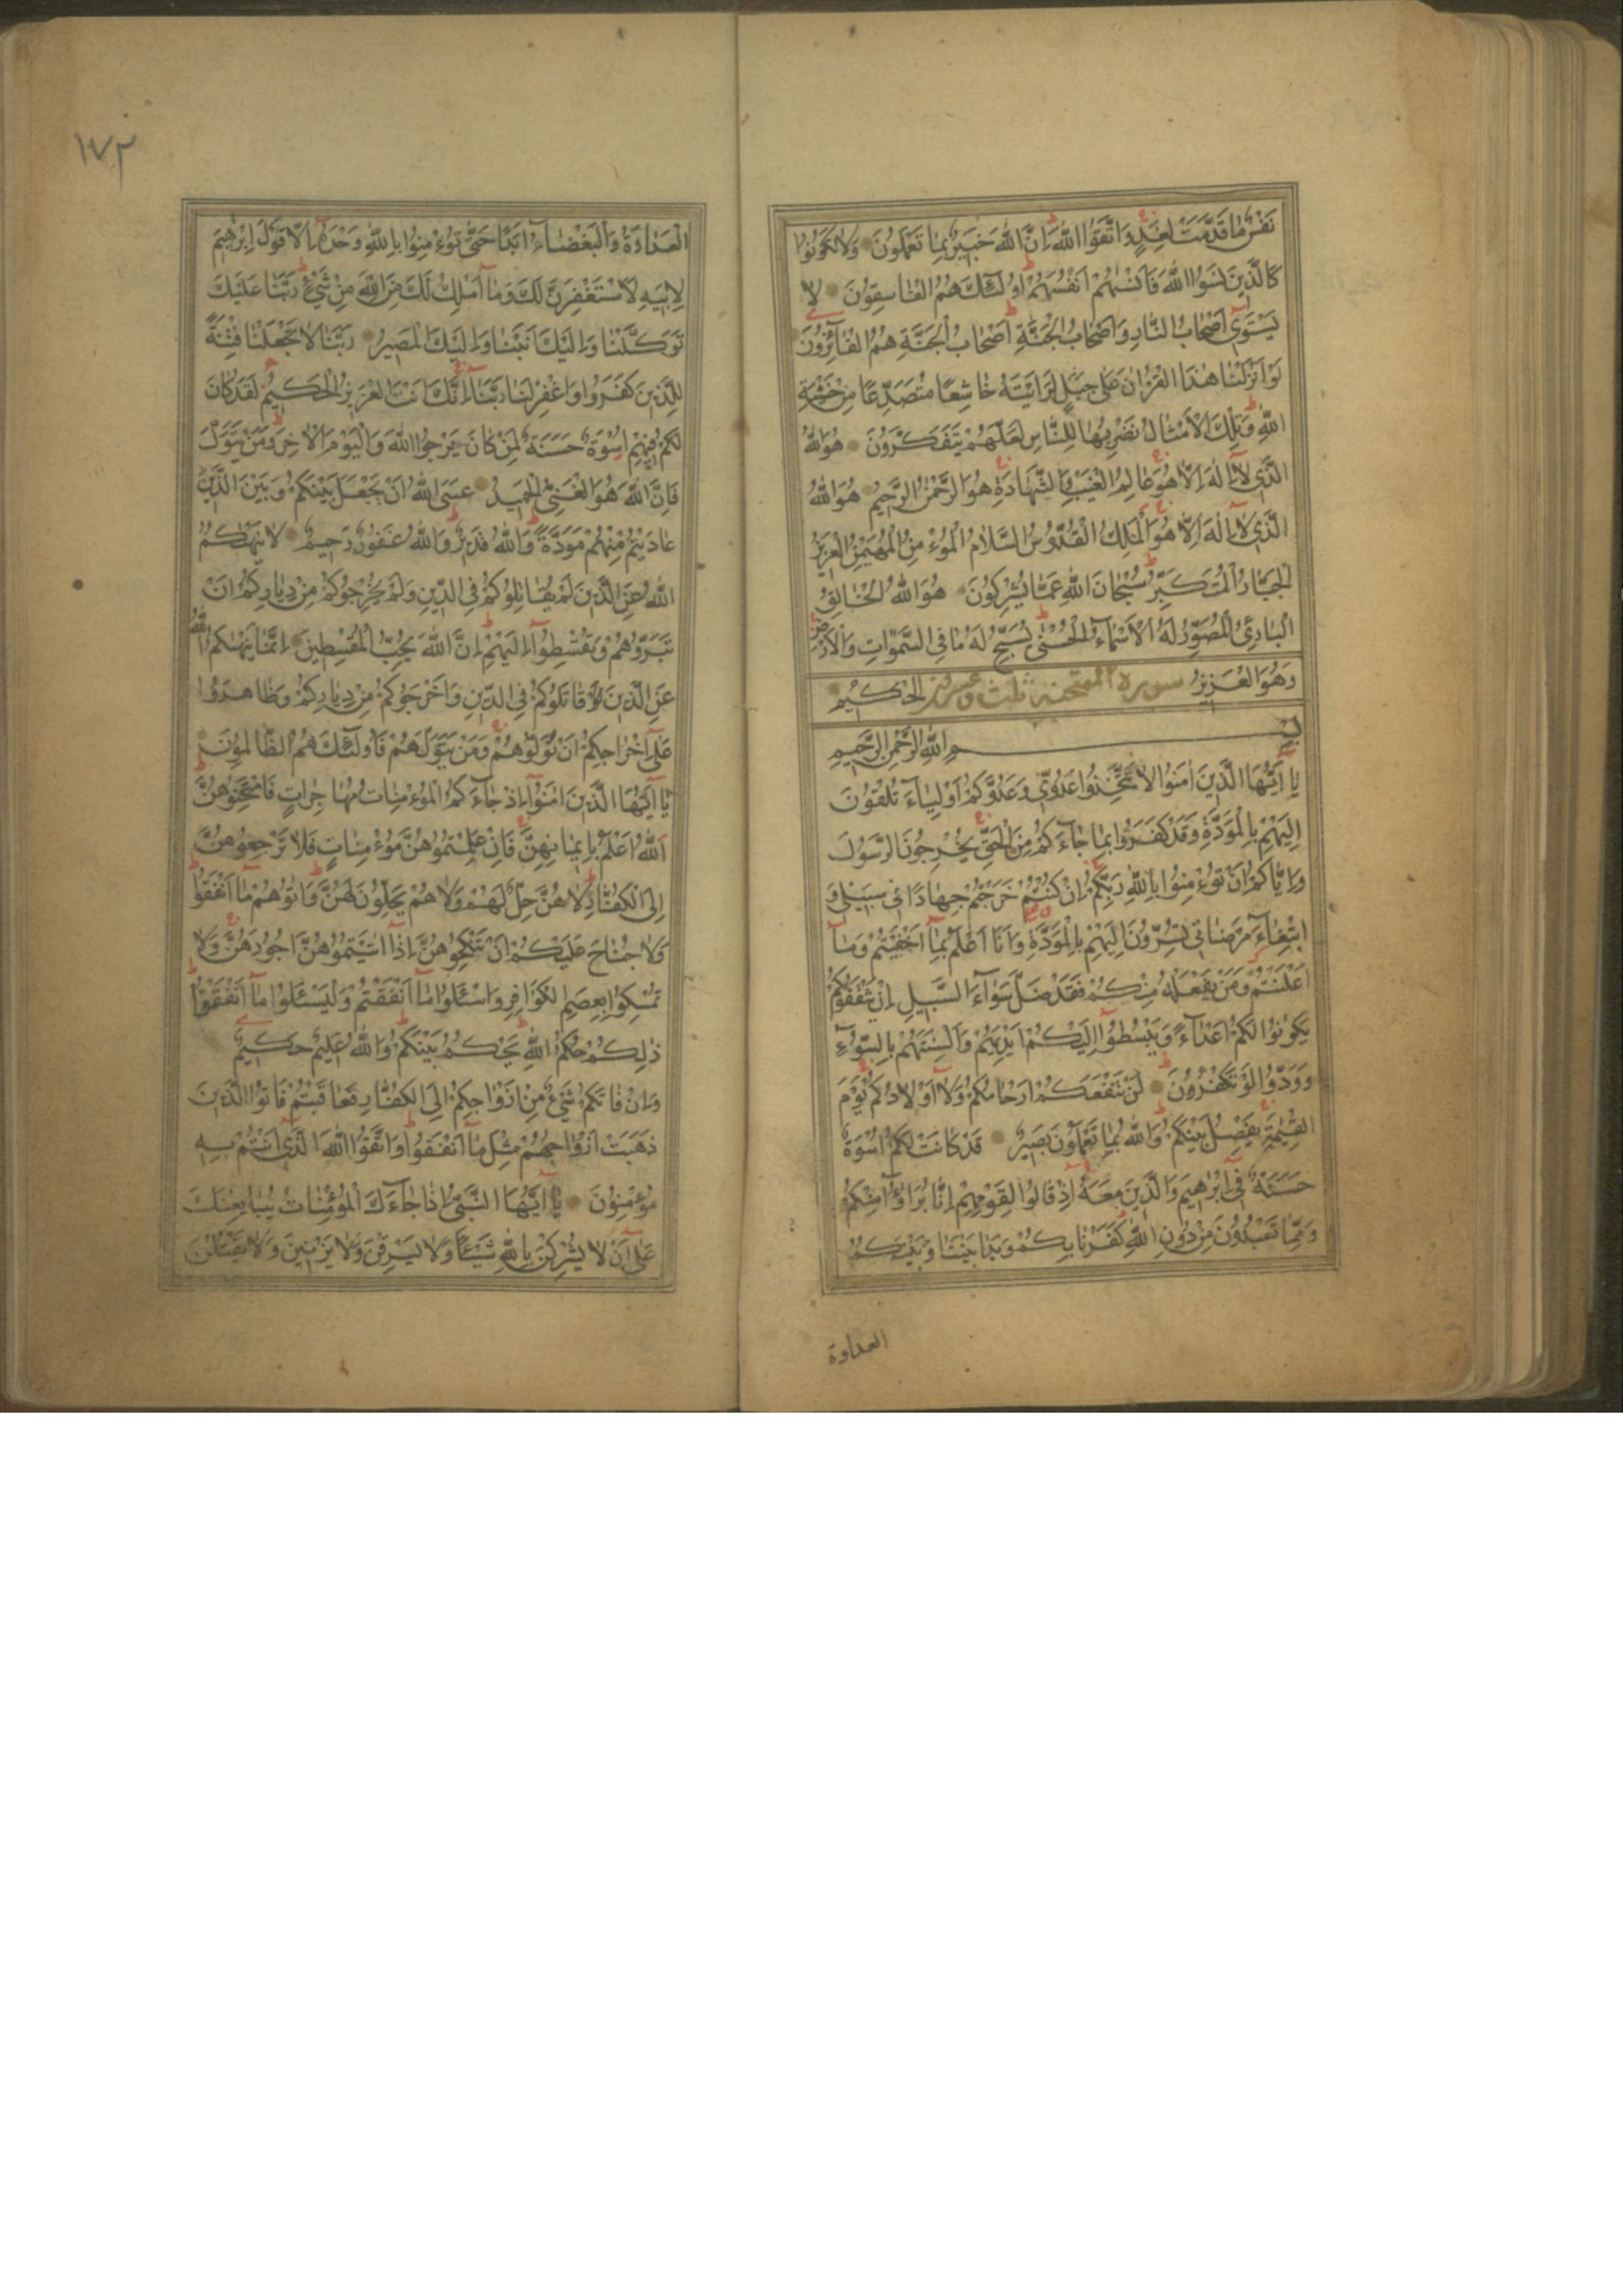 نَفْسٌ مَا قَدَّمَتْ لِغَدٍ وَاتَّقُوا اللّٰهَ اِنَّ اللّٰهَ خَبِيرٌ بِمَا تَعْمَلُونَ وَلَا تَكُونُوا
كَالَّذِينَ نَسُوا اللّٰهَ فَاَنْسٰيهُمْ اَنْفُسَهُمْ اُولٰئِكَ هُمُ الْفَاسِقُونَ لَا
يَسْتَوِي اَصْحَابُ النَّارِ وَاَصْحَابُ الْجَنَّةِ اَصْحَابُ الْجَنَّةِ هُمُ الْفَائِزُونَ
لَوْ اَنْزَلْنَا هٰذَا الْقُرْاٰنَ عَلٰى جَبَلٍ لَرَاَيْتَهُ خَاشِعًا مُتَصَدِّعًا مِنْ خَشْيَةِ
اللّٰهِ وَتِلْكَ الْاَمْثَالُ نَضْرِبُهَا لِلنَّاسِ لَعَلَّهُمْ يَتَفَكَّرُونَ هُوَ اللّٰهُ
الَّذِي لَا اِلٰهَ اِلَّا هُوَ عَالِمُ الْغَيْبِ وَالشَّهَادَةِ هُوَ الرَّحْمٰنُ الرَّحِيمُ هُوَ اللّٰهُ
الَّذِي لَا اِلٰهَ اِلَّا هُوَ اَلْمَلِكُ الْقُدُّوسُ السَّلَامُ الْمُؤْمِنُ الْمُهَيْمِنُ الْعَزِيزُ
الْجَبَّارُ الْمُتَكَبِّرُ سُبْحَانَ اللّٰهِ عَمَّا يُشْرِكُونَ هُوَ اللّٰهُ الْخَالِقُ
الْبَارِئُ الْمُصَوِّرُ لَهُ الْاَسْمَاءُ الْحُسْنٰى يُسَبِّحُ لَهُ مَا فِي السَّمٰوَاتِ وَالْاَرْضِ
وَهُوَ الْعَزِيزُ سورة الممتحنة ثلث وعشر الْحَكِيمُ
بِسْمِ اللّٰهِ الرَّحْمٰنِ الرَّحِيمِ
يَا اَيُّهَا الَّذِينَ اٰمَنُوا لَا تَتَّخِذُوا عَدُوِّي وَعَدُوَّكُمْ اَوْلِيَاءَ تُلْقُونَ
اِلَيْهِمْ بِالْمَوَدَّةِ وَقَدْ كَفَرُوا بِمَا جَاءَكُمْ مِنَ الْحَقِّ يُخْرِجُونَ الرَّسُولَ
وَاِيَّاكُمْ اَنْ تُؤْمِنُوا بِاللّٰهِ رَبِّكُمْ اِنْ كُنْتُمْ خَرَجْتُمْ جِهَادًا فِي سَبِيلِي وَ
ابْتِغَاءَ مَرْضَاتِي تُسِرُّونَ اِلَيْهِمْ بِالْمَوَدَّةِ وَاَنَا اَعْلَمُ بِمَا اَخْفَيْتُمْ وَمَا
اَعْلَنْتُمْ وَمَنْ يَفْعَلْهُ مِنْكُمْ فَقَدْ ضَلَّ سَوَاءَ السَّبِيلِ اِنْ يَثْقَفُوكُمْ
يَكُونُوا لَكُمْ اَعْدَاءً وَيَبْسُطُوا اِلَيْكُمْ اَيْدِيَهُمْ وَاَلْسِنَتَهُمْ بِالسُّوءِ
وَوَدُّوا لَوْ تَكْفُرُونَ لَنْ تَنْفَعَكُمْ اَرْحَامُكُمْ وَلَا اَوْلَادُكُمْ يَوْمَ
الْقِيٰمَةِ يَفْصِلُ بَيْنَكُمْ وَاللّٰهُ بِمَا تَعْمَلُونَ بَصِيرٌ قَدْ كَانَتْ لَكُمْ اُسْوَةٌ
حَسَنَةٌ فِي اِبْرٰهِيمَ وَالَّذِينَ مَعَهُ اِذْ قَالُوا لِقَوْمِهِمْ اِنَّا بُرَءٰٓؤُا مِنْكُمْ
وَمِمَّا تَعْبُدُونَ مِنْ دُونِ اللّٰهِ كَفَرْنَا بِكُمْ وَبَدَا بَيْنَنَا وَبَيْنَكُمُ
العداوة
١٧٣
الْعَدَاوَةُ وَالْبَغْضَاءُ اَبَدًا حَتّٰى تُؤْمِنُوا بِاللّٰهِ وَحْدَهُ اِلَّا قَوْلَ اِبْرٰهِيمَ
لِاَبِيهِ لَاَسْتَغْفِرَنَّ لَكَ وَمَا اَمْلِكُ لَكَ مِنَ اللّٰهِ مِنْ شَيْءٍ رَبَّنَا عَلَيْكَ
تَوَكَّلْنَا وَاِلَيْكَ اَنَبْنَا وَاِلَيْكَ الْمَصِيرُ رَبَّنَا لَا تَجْعَلْنَا فِتْنَةً
لِلَّذِينَ كَفَرُوا وَاغْفِرْ لَنَا رَبَّنَا اِنَّكَ اَنْتَ الْعَزِيزُ الْحَكِيمُ لَقَدْ كَانَ
لَكُمْ فِيهِمْ اُسْوَةٌ حَسَنَةٌ لِمَنْ كَانَ يَرْجُوا اللّٰهَ وَالْيَوْمَ الْاٰخِرَ وَمَنْ يَتَوَلَّ
فَاِنَّ اللّٰهَ هُوَ الْغَنِيُّ الْحَمِيدُ عَسَى اللّٰهُ اَنْ يَجْعَلَ بَيْنَكُمْ وَبَيْنَ الَّذِينَ
عَادَيْتُمْ مِنْهُمْ مَوَدَّةً وَاللّٰهُ قَدِيرٌ وَاللّٰهُ غَفُورٌ رَحِيمٌ لَا يَنْهٰيكُمُ
اللّٰهُ عَنِ الَّذِينَ لَمْ يُقَاتِلُوكُمْ فِي الدِّينِ وَلَمْ يُخْرِجُوكُمْ مِنْ دِيَارِكُمْ اَنْ
تَبَرُّوهُمْ وَتُقْسِطُوا اِلَيْهِمْ اِنَّ اللّٰهَ يُحِبُّ الْمُقْسِطِينَ اِنَّمَا يَنْهٰيكُمُ اللّٰهُ
عَنِ الَّذِينَ قَاتَلُوكُمْ فِي الدِّينِ وَاَخْرَجُوكُمْ مِنْ دِيَارِكُمْ وَظَاهَرُوا
عَلٰى اِخْرَاجِكُمْ اَنْ تَوَلَّوْهُمْ وَمَنْ يَتَوَلَّهُمْ فَاُولٰئِكَ هُمُ الظَّالِمُونَ
يَا اَيُّهَا الَّذِينَ اٰمَنُوا اِذَا جَاءَكُمُ الْمُؤْمِنَاتُ مُهَاجِرَاتٍ فَامْتَحِنُوهُنَّ
اَللّٰهُ اَعْلَمُ بِاِيمَانِهِنَّ فَاِنْ عَلِمْتُمُوهُنَّ مُؤْمِنَاتٍ فَلَا تَرْجِعُوهُنَّ
اِلَى الْكُفَّارِ لَا هُنَّ حِلٌّ لَهُمْ وَلَا هُمْ يَحِلُّونَ لَهُنَّ وَاٰتُوهُمْ مَا اَنْفَقُوا
وَلَا جُنَاحَ عَلَيْكُمْ اَنْ تَنْكِحُوهُنَّ اِذَا اٰتَيْتُمُوهُنَّ اُجُورَهُنَّ وَلَا
تُمْسِكُوا بِعِصَمِ الْكَوَافِرِ وَاسْئَلُوا مَا اَنْفَقْتُمْ وَلْيَسْئَلُوا مَا اَنْفَقُوا
ذٰلِكُمْ حُكْمُ اللّٰهِ يَحْكُمُ بَيْنَكُمْ وَاللّٰهُ عَلِيمٌ حَكِيمٌ
وَاِنْ فَاتَكُمْ شَيْءٌ مِنْ اَزْوَاجِكُمْ اِلَى الْكُفَّارِ فَعَاقَبْتُمْ فَاٰتُوا الَّذِينَ
ذَهَبَتْ اَزْوَاجُهُمْ مِثْلَ مَا اَنْفَقُوا وَاتَّقُوا اللّٰهَ الَّذِي اَنْتُمْ بِهِ
مُؤْمِنُونَ يَا اَيُّهَا النَّبِيُّ اِذَا جَاءَكَ الْمُؤْمِنَاتُ يُبَايِعْنَكَ
عَلٰى اَنْ لَا يُشْرِكْنَ بِاللّٰهِ شَيْئًا وَلَا يَسْرِقْنَ وَلَا يَزْنِينَ وَلَا يَقْتُلْنَ